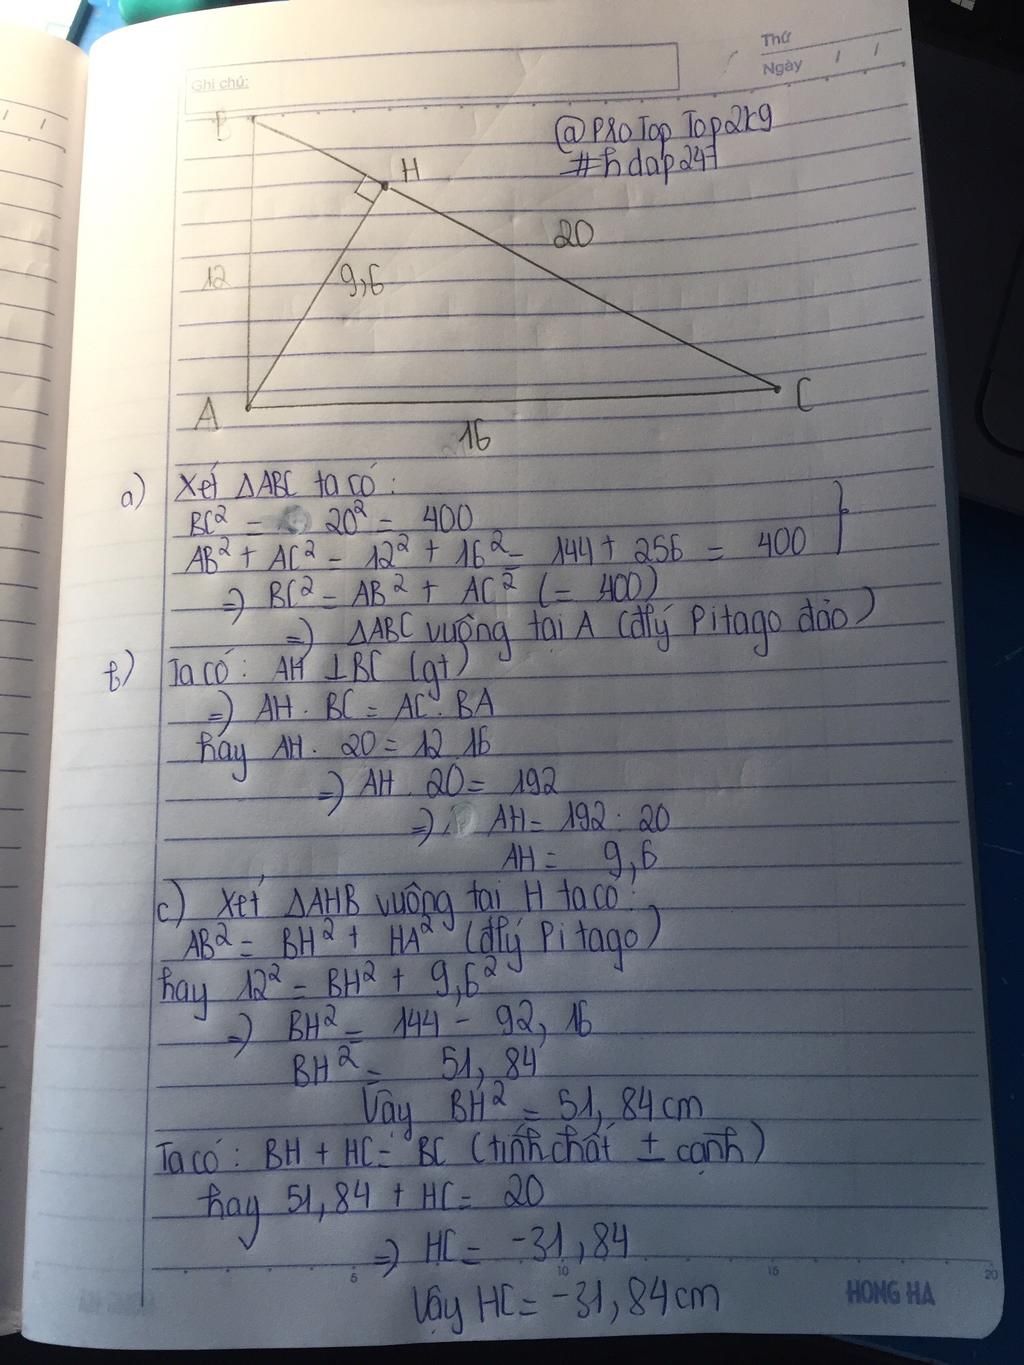 Thứ
Ngày / /
Ghi chú:
@P80TopTop2k9
#hdap247
B
H
20
12
9,6
A
C
16
a) Xét ΔABC ta có:
BC² = 20² = 400
AB² + AC² = 12² + 16² = 144 + 256 = 400
=> BC² = AB² + AC² (= 400)
=> ΔABC vuông tại A (đlý Pitago đảo)
b) Ta có: AH ⊥ BC (gt)
=> AH . BC = AC . BA
hay AH . 20 = 12 16
=> AH . 20 = 192
=> AH = 192 : 20
AH = 9,6
c) Xét ΔAHB vuông tại H ta có:
AB² = BH² + HA² (đlý Pitago)
hay 12² = BH² + 9,6²
=> BH² = 144 - 92,16
BH² = 51,84
Vậy BH² = 51,84cm
Ta có: BH + HC = BC (tính chất ± cạnh)
hay 51,84 + HC = 20
=> HC = -31,84
Vậy HC = -31,84cm
5 10 15 20
HONG HA